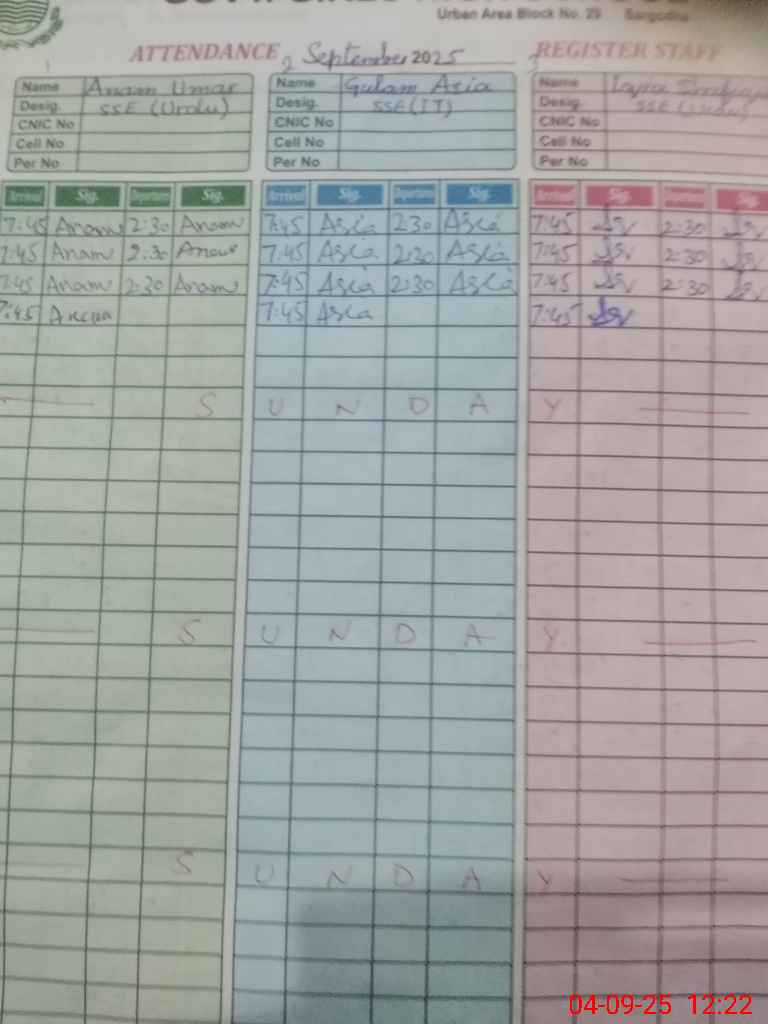 Urban Area Block No. 29 Sargodha
ATTENDANCE September 2025 REGISTER STAFF
Name Anam Umar Name Gulam Asia Name
Desig. SSE (Urdu) Desig. SSE (IT) Desig. SSE (Urdu)
CNIC No CNIC No CNIC No
Cell No Cell No Cell No
Per No Per No Per No
Arrival Sig. Departure Sig. Arrival Sig. Departure Sig. Arrival Sig. Departure Sig.
7:45 Anam 2:30 Anam 7:45 Asia 2:30 Asia 7:45 2:30
7:45 Anam 2:30 Anam 7:45 Asia 2:30 Asia 7:45 2:30
7:45 Anam 2:30 Anam 7:45 Asia 2:30 Asia 7:45 2:30
7:45 Anam 7:45 Asia 7:45
S U N D A Y
S U N D A Y
S U N D A Y
04-09-25 12:22